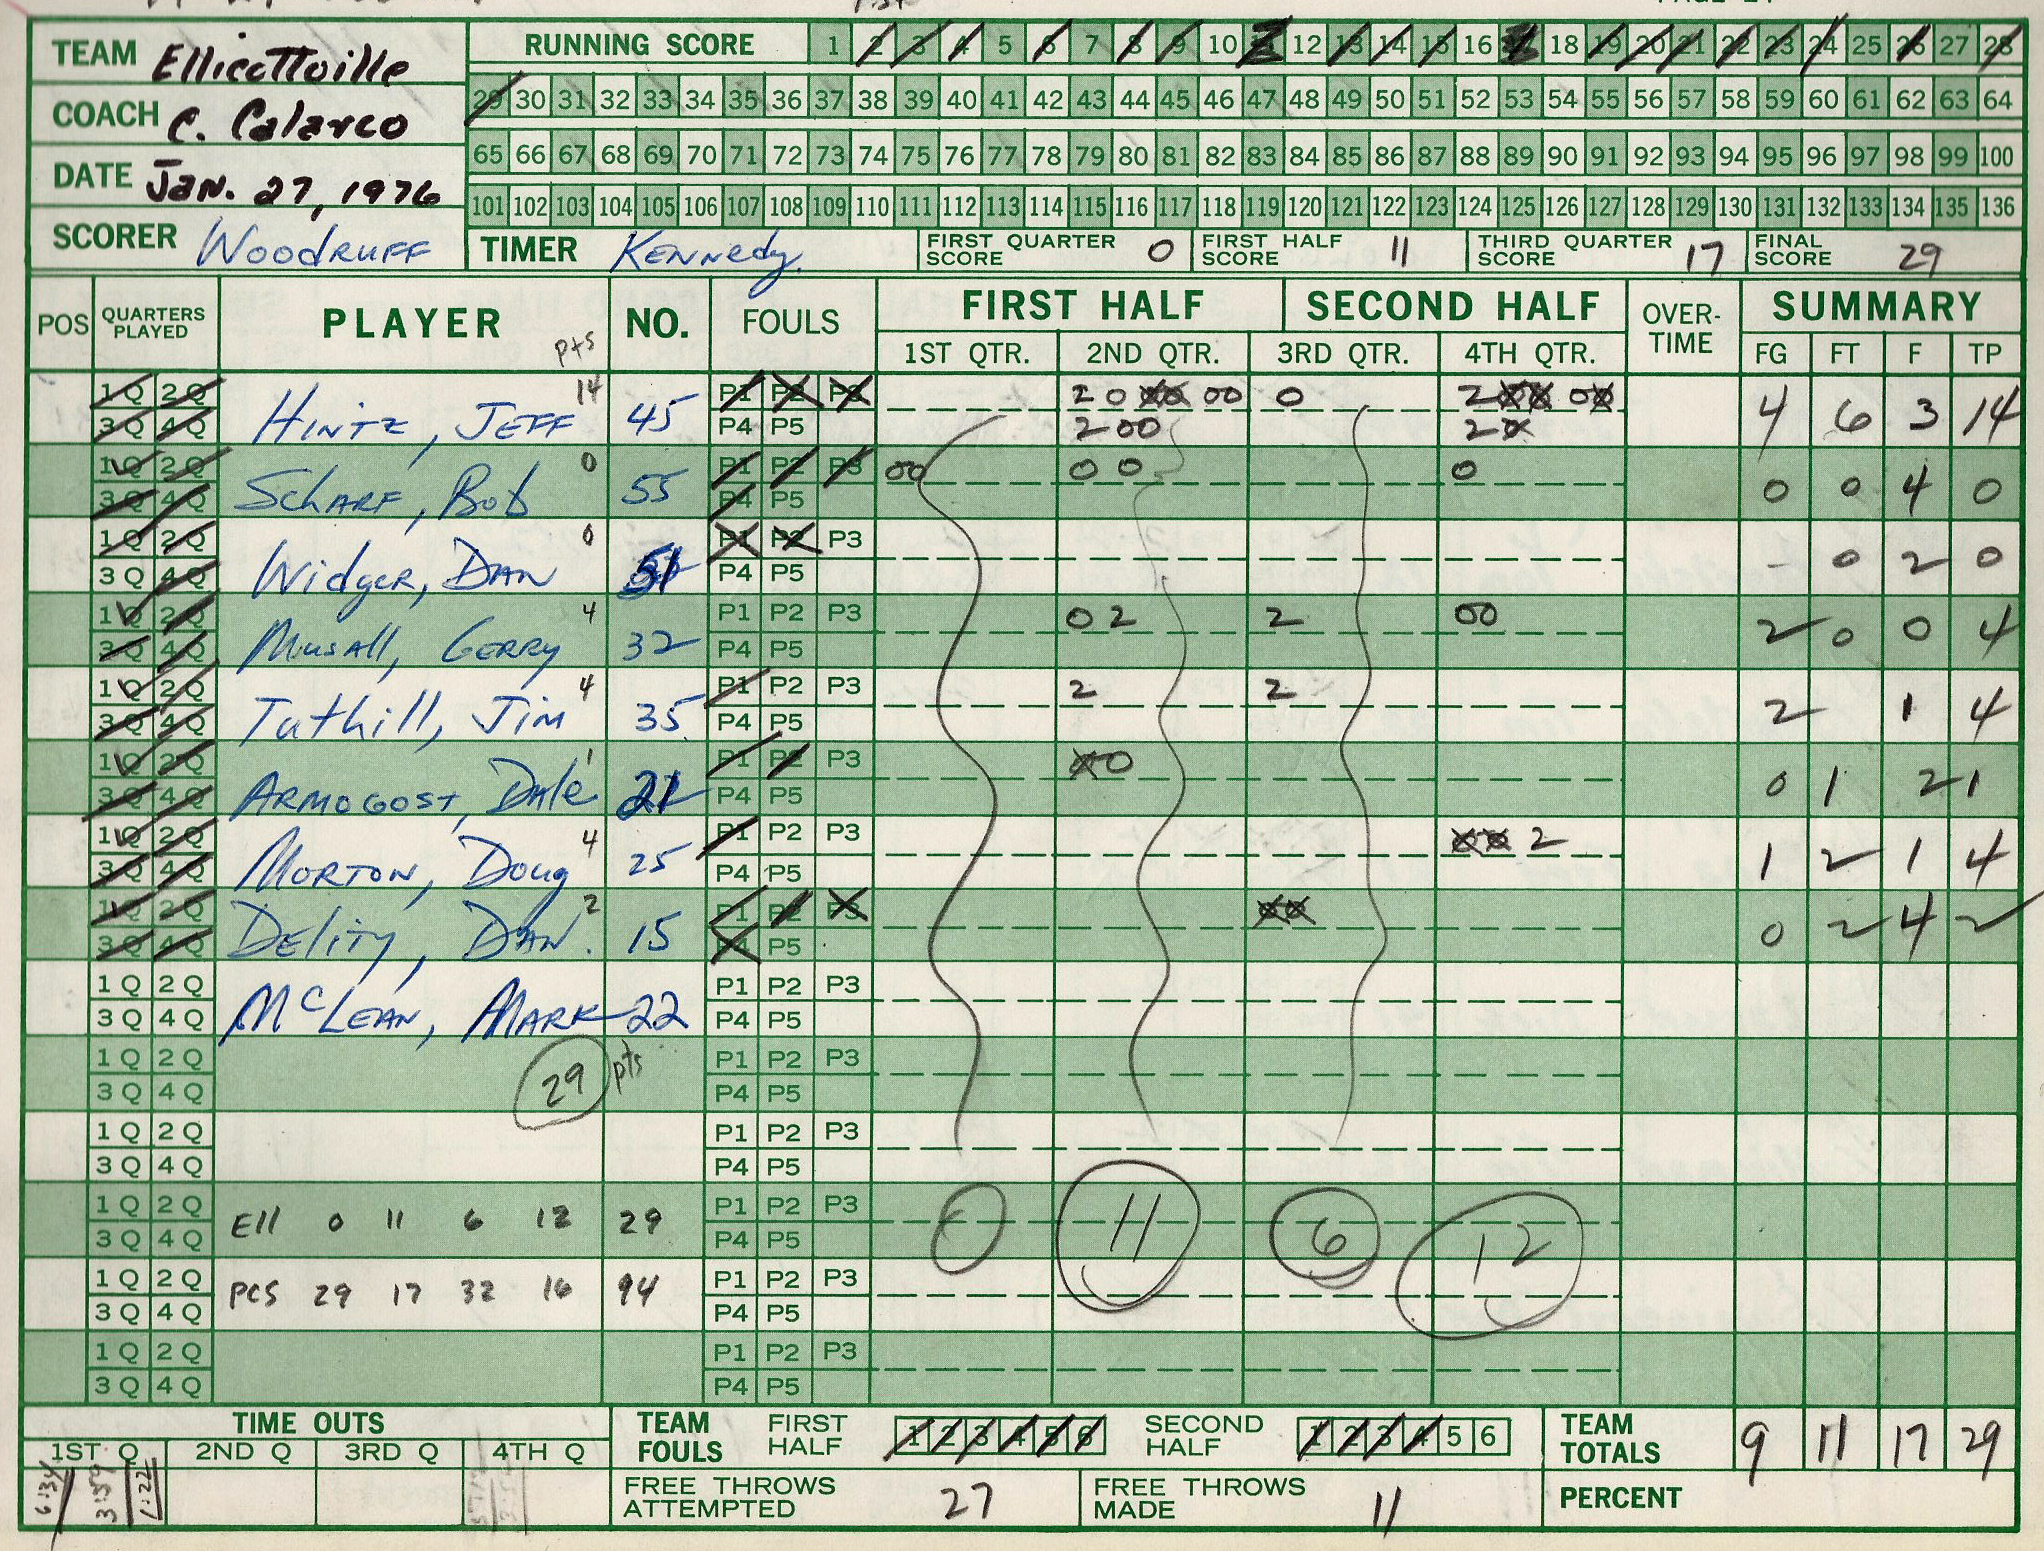 TEAM Ellicottville
RUNNING SCORE 1 2 3 4 5 6 7 8 9 10 11 12 13 14 15 16 17 18 19 20 21 22 23 24 25 26 27 28
COACH C. Calarco
29 30 31 32 33 34 35 36 37 38 39 40 41 42 43 44 45 46 47 48 49 50 51 52 53 54 55 56 57 58 59 60 61 62 63 64
DATE Jan. 27, 1976
65 66 67 68 69 70 71 72 73 74 75 76 77 78 79 80 81 82 83 84 85 86 87 88 89 90 91 92 93 94 95 96 97 98 99 100
101 102 103 104 105 106 107 108 109 110 111 112 113 114 115 116 117 118 119 120 121 122 123 124 125 126 127 128 129 130 131 132 133 134 135 136
SCORER Woodruff
TIMER Kennedy
FIRST QUARTER SCORE 0
FIRST HALF SCORE 11
THIRD QUARTER SCORE 17
FINAL SCORE 29
POS QUARTERS PLAYED PLAYER pts NO. FOULS FIRST HALF SECOND HALF OVER-TIME SUMMARY
1ST QTR. 2ND QTR. 3RD QTR. 4TH QTR. FG FT F TP
1Q 2Q 14 P1 P2 P3 2 0 00 00 0 2 00 00
3Q 4Q Hintz, Jeff 45 P4 P5 2 00 2 0 4 6 3 14
1Q 2Q 0 P1 P2 P3 00 0 0 0
3Q 4Q Scharf, Bob 55 P4 P5 0 0 4 0
1Q 2Q 0 P1 P2 P3
3Q 4Q Widger, Dan 51 P4 P5 - 0 2 0
1Q 2Q 4 P1 P2 P3 0 2 2 00
3Q 4Q Musall, Gerry 32 P4 P5 2 0 0 4
1Q 2Q 4 P1 P2 P3 2 2
3Q 4Q Tuthill, Jim 35 P4 P5 2 1 4
1Q 2Q 1 P1 P2 P3 00
3Q 4Q Armogost, Dale 21 P4 P5 0 1 2 1
1Q 2Q 4 P1 P2 P3 00 2
3Q 4Q Morton, Doug 25 P4 P5 1 2 1 4
1Q 2Q 2 P1 P2 P3 00
3Q 4Q Delity, Dan. 15 P4 P5 0 2 4 2
1Q 2Q P1 P2 P3
3Q 4Q McLean, Mark 22 P4 P5
1Q 2Q P1 P2 P3
3Q 4Q 29 pts P4 P5
1Q 2Q P1 P2 P3
3Q 4Q P4 P5
1Q 2Q P1 P2 P3
3Q 4Q Ell 0 11 6 12 29 P4 P5 0 11 6 12
1Q 2Q P1 P2 P3
3Q 4Q PCS 29 17 32 16 94 P4 P5
1Q 2Q P1 P2 P3
3Q 4Q P4 P5
TIME OUTS
1ST Q 2ND Q 3RD Q 4TH Q
6:34 3:59 1:22
TEAM FOULS FIRST HALF 1 2 3 4 5 6 SECOND HALF 1 2 3 4 5 6
TEAM TOTALS 9 11 17 29
FREE THROWS ATTEMPTED 27
FREE THROWS MADE 11
PERCENT